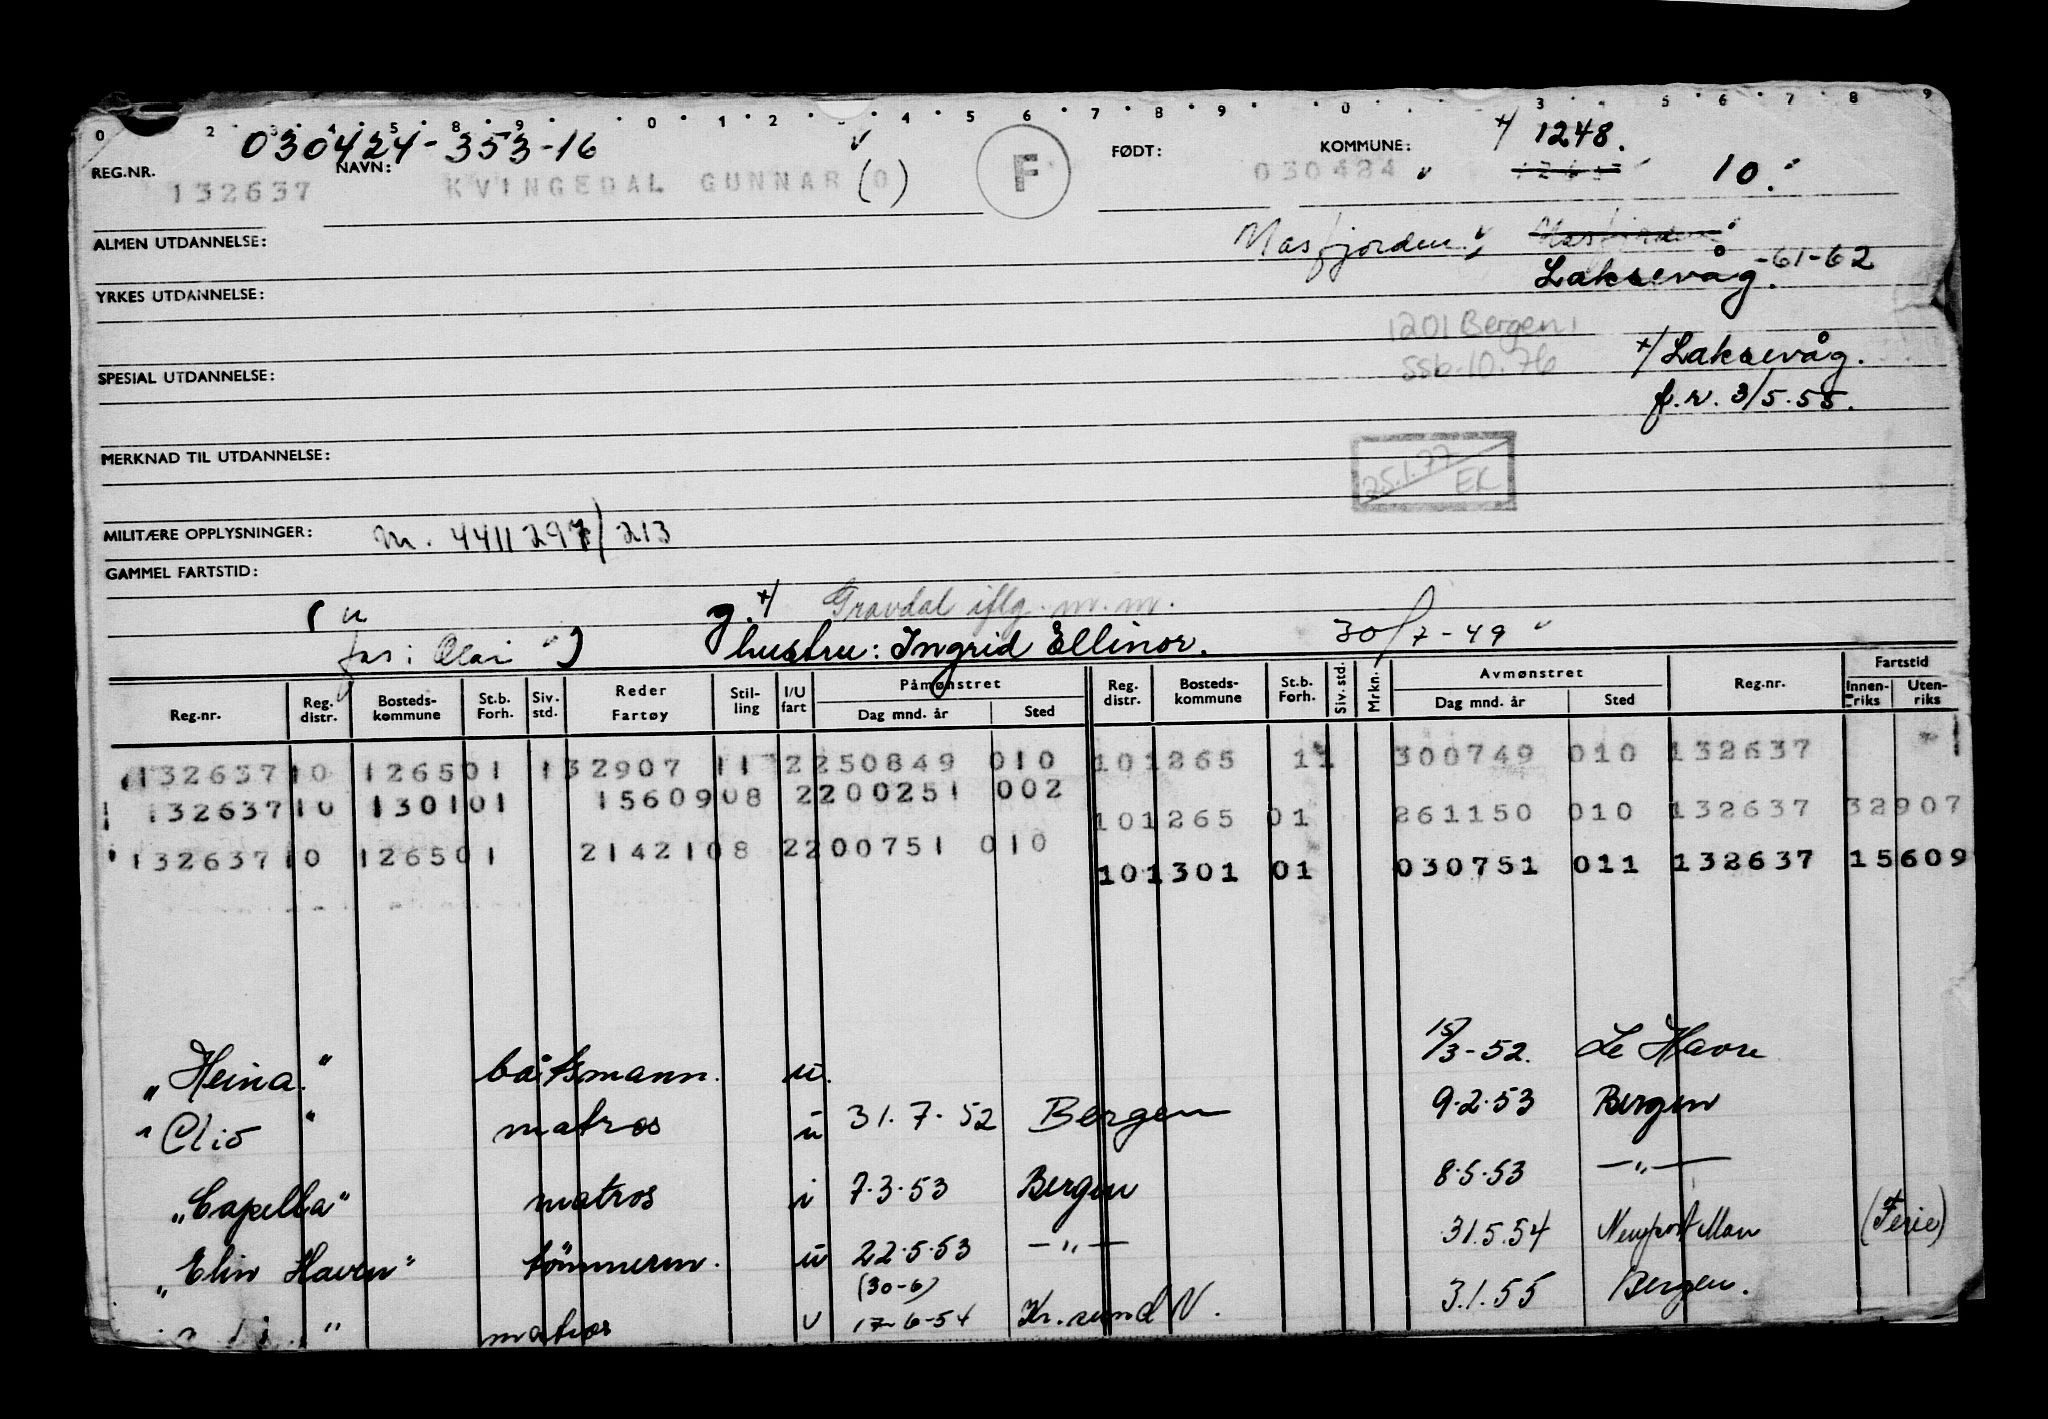 0 2 3 4 5 8 9 0 1 2 4 5 6 7 8 9 0 3 5 6 7 8 9
030424-353-16
REG.NR. NAVN: F FØDT: KOMMUNE: x/ 1248.
132637 KVINGEDAL GUNNAR (O) 030424 1265 10.
ALMEN UTDANNELSE: Masfjorden Masfjorden
YRKES UTDANNELSE: Laksevåg. -61-62
1201 Bergen,
SPESIAL UTDANNELSE: ssb-10.76 x/ Laksevåg.
f.r. 3/5.55.
MERKNAD TIL UTDANNELSE: 25.1.77 EK
MILITÆRE OPPLYSNINGER: M. 4411297/213
GAMMEL FARTSTID:
g. x/ Gravdal iflg. m.m.
far: Olai hustru: Ingrid Ellinor. 30/7-49
Reg.nr. Reg. distr. Bosteds-kommune St.b. Forh. Siv. std. Reder Fartøy Stil-ling I/U fart Påmønstret Dag mnd. år Sted Reg. distr. Bosteds-kommune St.b. Forh. Siv. std. Mrkn. Avmønstret Dag mnd. år Sted Reg.nr. Fartstid Innen-riks Uten-riks
132637 10 1265 01 132907 11 2 250849 010 10 1265 11 300749 010 132637 1
132637 10 1301 01 15609 08 2 200251 002 10 1265 01 261150 010 132637 32907
132637 10 1265 01 21421 08 2 200751 010 10 1301 01 030751 011 132637 15609
"Heina" båtsmann. u. 15/3-52. Le Havre
"Clio" matros u 31.7.52 Bergen 9.2.53 Bergen
"Capella" matros i 7.3.53 Bergen 8.5.53 —"—
"Elin Haven" tömmerm. u 22.5.53 —"— 31.5.54 (Ferie)
(30-6)
matros u 17-6-54 Kr.sund N. 3.1.55 Bergen.